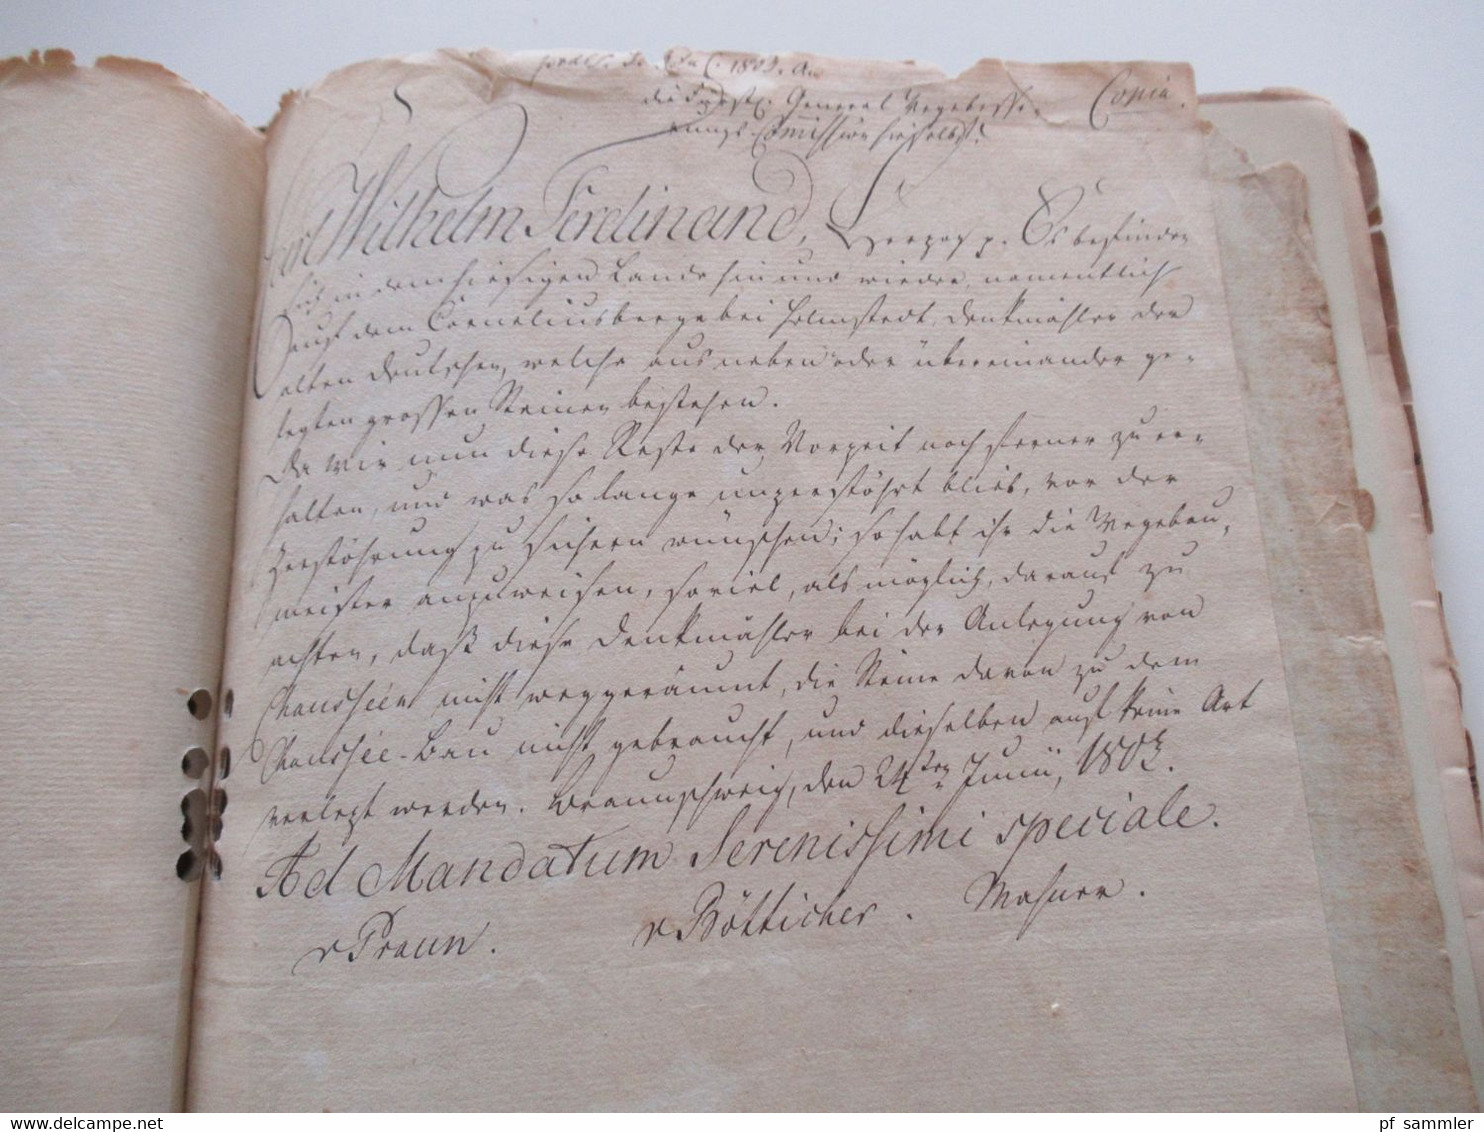 1803. An
die Fürstl. General Wegebesse-
Copia.
rungs Commission hieselbst.
Carl Wilhelm Ferdinand, Herzog p. Es befinden
sich in dem hiesigen Lande hin und wieder, namentlich
auf dem Corneliusberge bei Helmstedt, Denkmähler der
alten Deutschen, welche aus neben oder übereinander ge-
legten grossen Steinen bestehen.
Da Wir nun diese Reste der Vorzeit noch ferner zu er-
halten, und was so lange unzerstöhrt blieb, vor der
Zerstöhrung zu sichern wünschen; so habt ihr die Wegebau-
meister anzuweisen, soviel, als möglich, darauf zu
achten, daß diese Denkmähler bei der Anlegung von
Chausséen nicht weggeräumt, die Steine davon zu dem
Chaussée-Bau nicht gebraucht, und dieselben auf keine Art
verlezt werden. Braunschweig, den 24ten Junii, 1803.
Ad Mandatum Serenissimi speciale.
v Praun. v Bötticher. Mahner.
pf_sammler